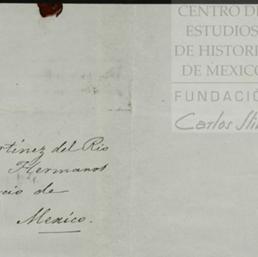 CENTRO DE
ESTUDIOS
DE HISTORI
DE MEXICO
FUNDACIÓ
Carlos Sli
rtinez del Río
Hermanos
cio de
Mexico.